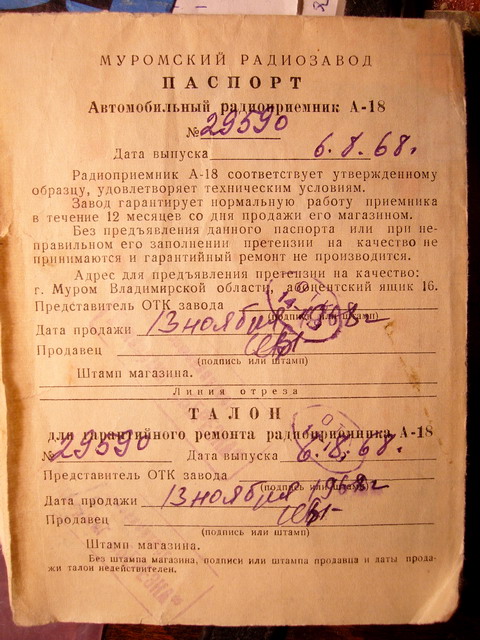 МУРОМСКИЙ РАДИОЗАВОД
ПАСПОРТ
Автомобильный радиоприемник А-18
№ 29590
Дата выпуска 6.8.68г.
Радиоприемник А-18 соответствует утвержденному
образцу, удовлетворяет техническим условиям.
Завод гарантирует нормальную работу приемника
в течение 12 месяцев со дня продажи его магазином.
Без предъявления данного паспорта или при не-
правильном его заполнении претензии на качество не
принимаются и гарантийный ремонт не производится.
Адрес для предъявления претензии на качество:
г. Муром Владимирской области, абонентский ящик 16.
Представитель ОТК завода
(подпись или штамп)
Дата продажи 13 ноября 1968г
Продавец
(подпись или штамп)
Штамп магазина.
Линия отреза
ТАЛОН
для гарантийного ремонта радиоприемника А-18
№ 29590 Дата выпуска 6.8.68г.
Представитель ОТК завода
(подпись или штамп)
Дата продажи 13 ноября 968г
Продавец
(подпись или штамп)
Штамп магазина.
Без штампа магазина, подписи или штампа продавца и даты прода-
жи талон недействителен.